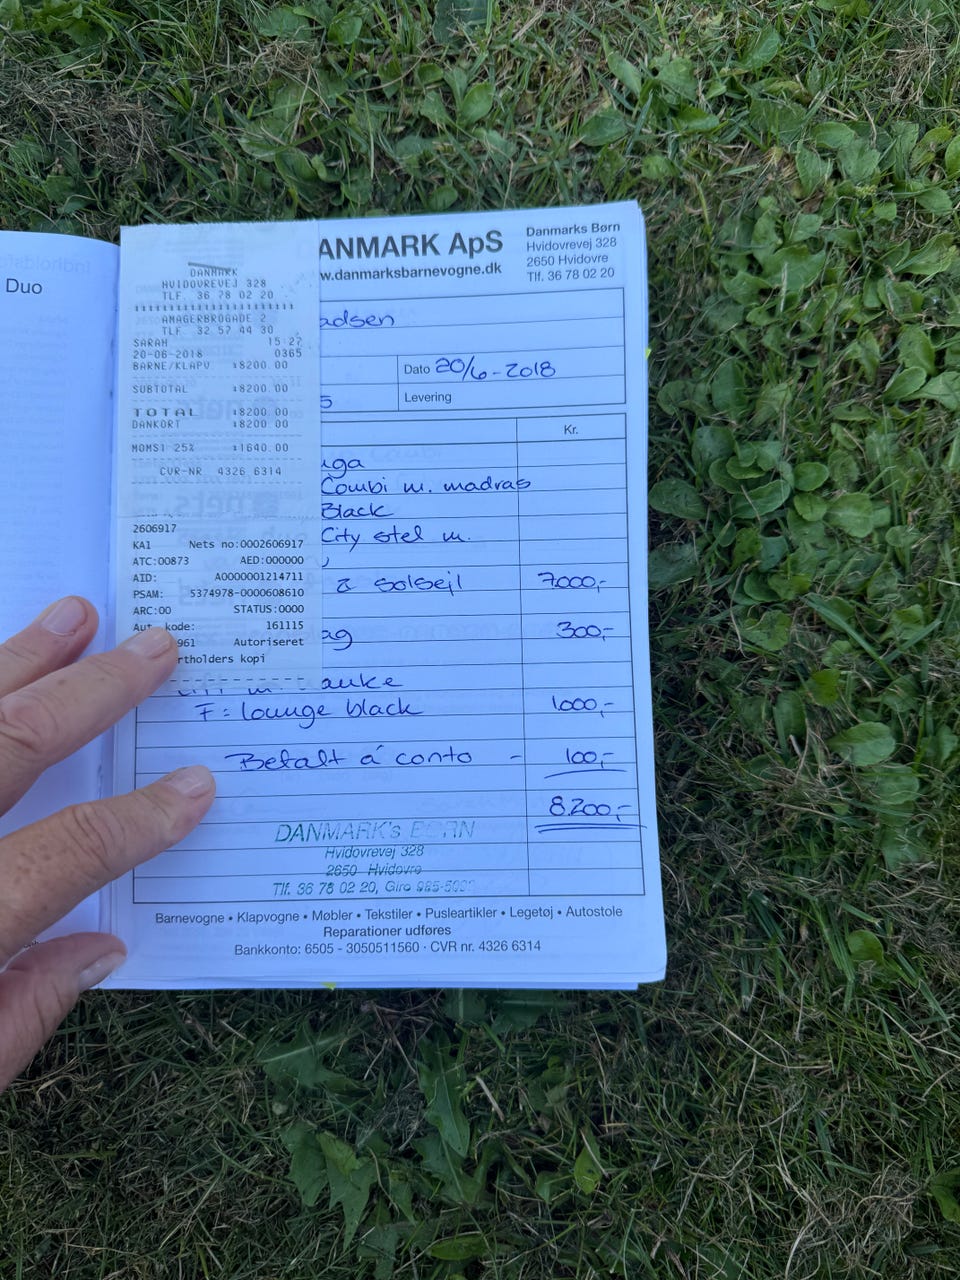 Duo
DANMARK
HVIDOVREVEJ 328
TLF. 36 78 02 20
AMAGERBROGADE 2
TLF. 32 57 44 30
SARAH 15:27
20-06-2018 0365
BARNE/KLAPV. 8200.00
SUBTOTAL 8200.00
TOTAL 8200.00
DANKORT 8200.00
MOMS1 25% 1640.00
CVR-NR. 4326 6314
2606917
KA1 Nets no:0002606917
ATC:00873 AED:000000
AID: A0000001214711
PSAM: 5374978-0000608610
ARC:00 STATUS:0000
Aut. kode: 161115
961 Autoriseret
rtholders kopi
ANMARK ApS
w.danmarksbarnevogne.dk
Danmarks Børn
Hvidovrevej 328
2650 Hvidovre
Tlf. 36 78 02 20
adsen
Dato 20/6-2018
5 Levering
Kr.
uga
Combi m. madras
Black
City stel m.
à solsejl 7000,-
ag 300,-
F = lounge black 1000,-
Betalt á conto - 100,-
8.200,-
DANMARK's BØRN
Hvidovrevej 328
2650 Hvidovre
Tlf. 36 78 02 20, Giro
Barnevogne • Klapvogne • Møbler • Tekstiler • Pusleartikler • Legetøj • Autostole
Reparationer udføres
Bankkonto: 6505 - 3050511560 · CVR nr. 4326 6314